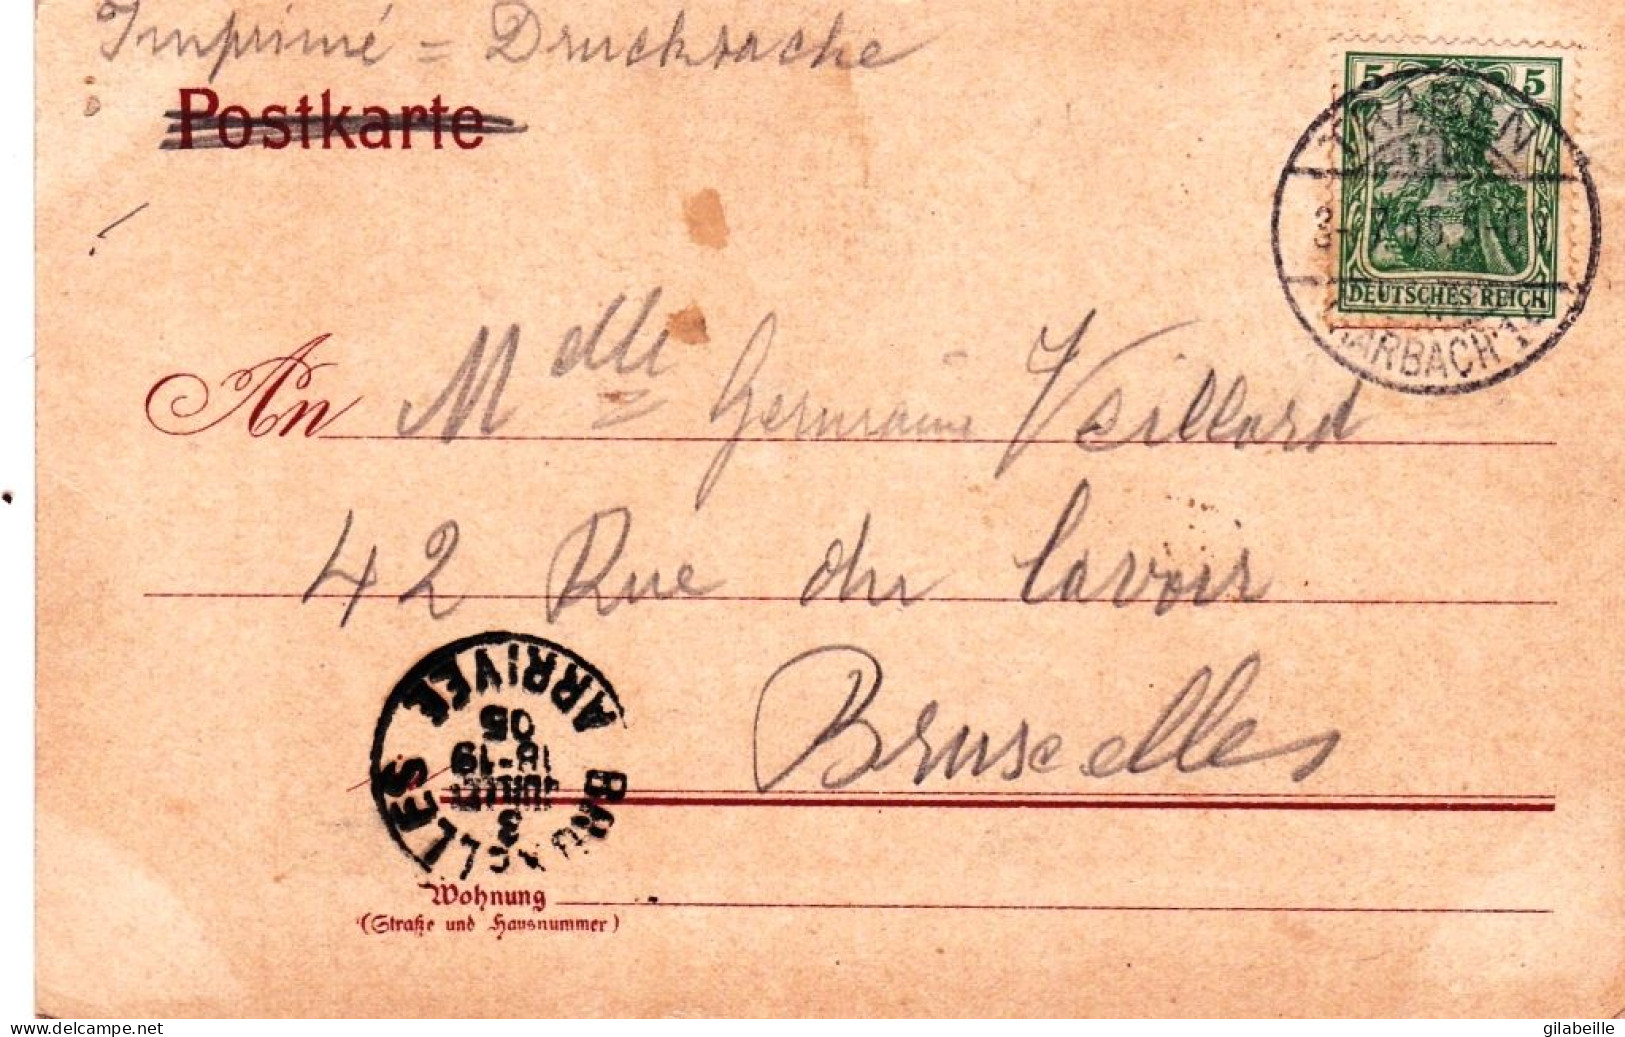 Imprimé = Drucksache
Postkarte
5 5
TRABEN
7.05. 5-6
DEUTSCHES REICH
TRARBACH
An Mdlle Germaine Veillard
42 Rue du Lavoir
Bruxelles
BRUXELLES
3
JUILLET
18-19
05
ARRIVEE
Wohnung
(Straße und Hausnummer)
www.delcampe.net
gilabeille